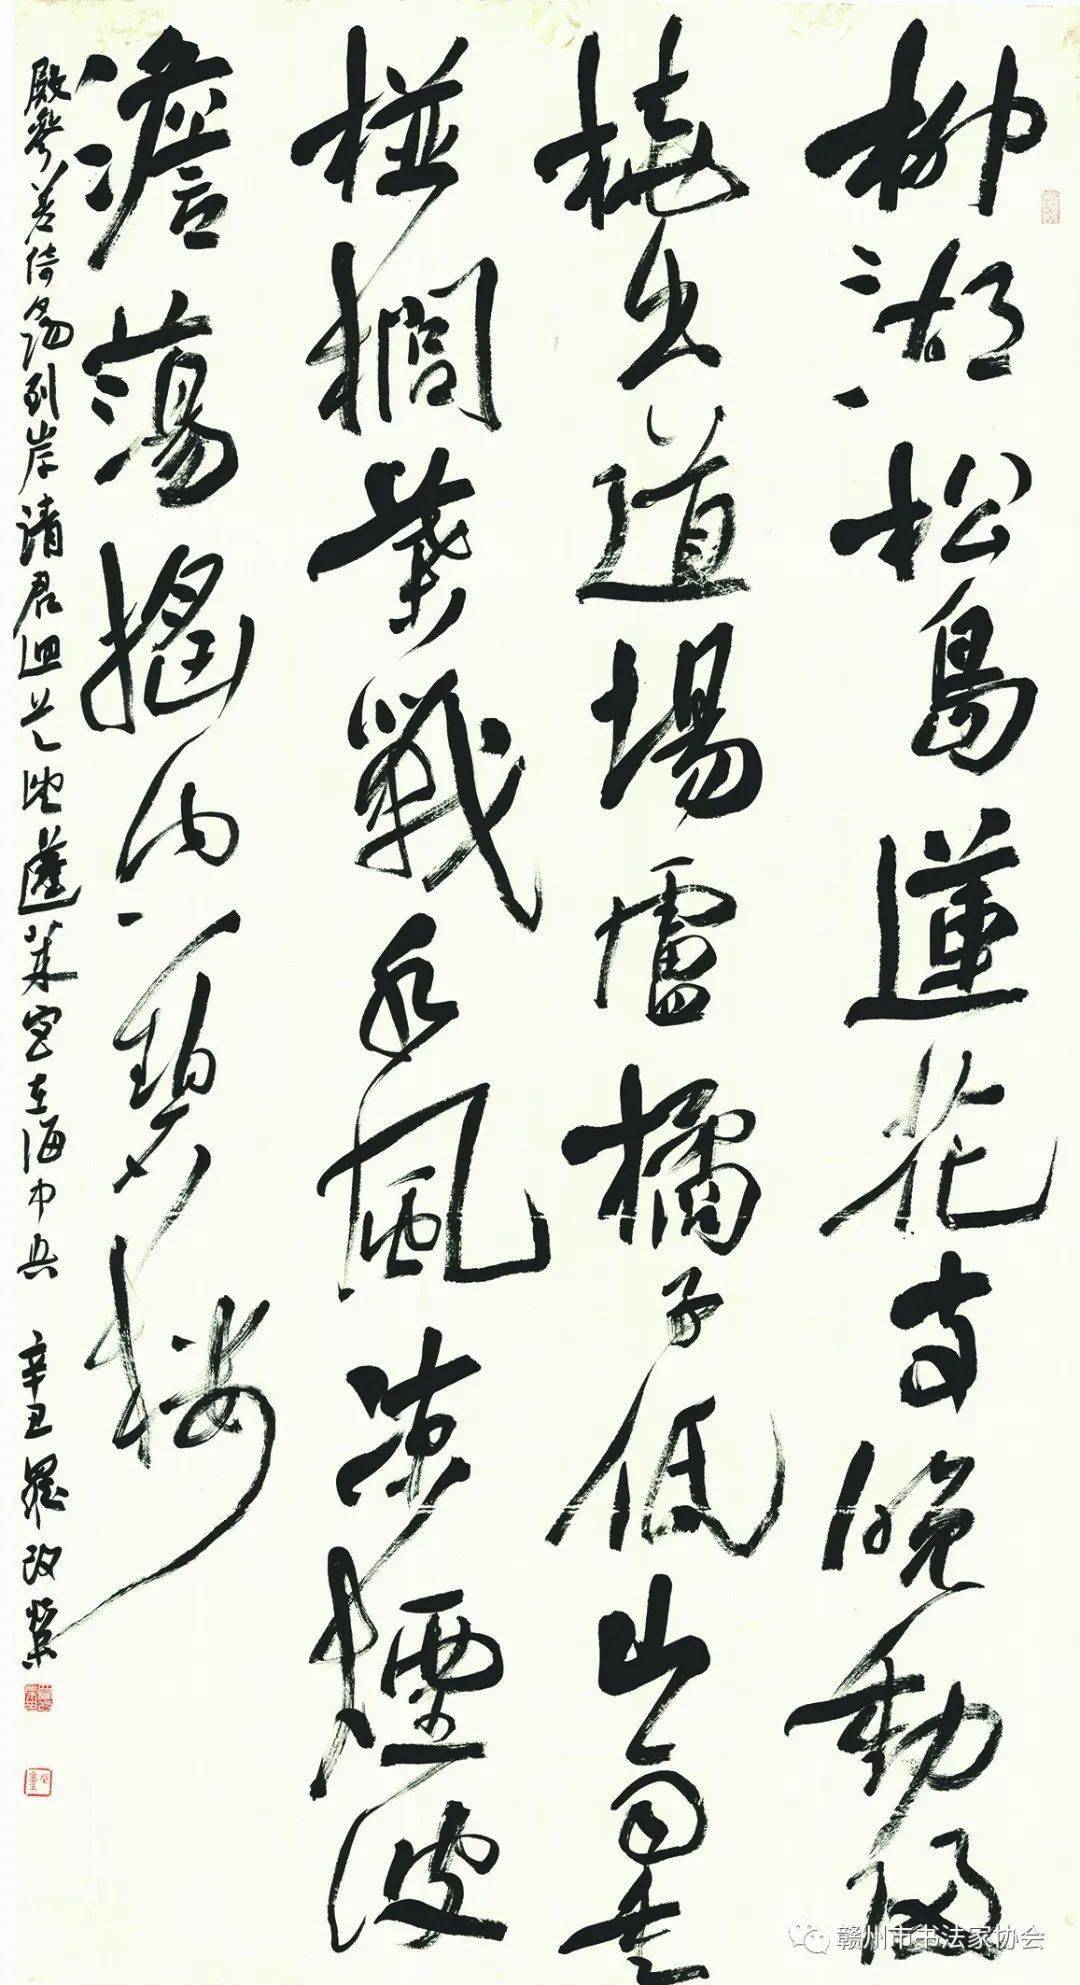 柳湖松島蓮花寺晚動歸
橈出道場盧橘子低山雨重
栟櫚葉戰水風涼煙波
澹蕩搖空碧樓
殿參差倚夕陽到岸請君迴首望蓬萊宮在海中央 辛丑 羅
赣州市书法家协会